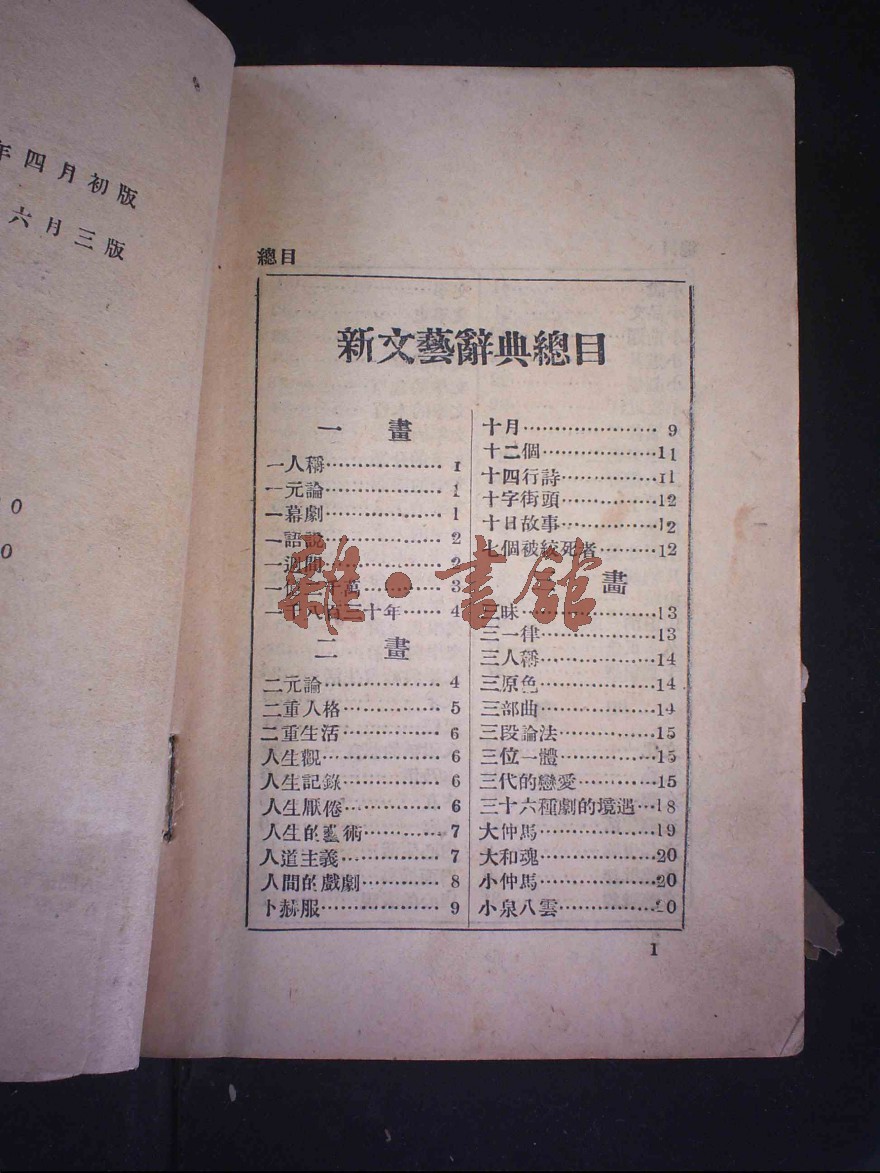 年四月初版
六月三版
0
0
總目
新文藝辭典總目
一 畫
一人稱………………1
一元論………………1
一幕劇………………1
一語說………………2
一週間………………2
千萬………3
一千八百三十年……4
二 畫
二元論………………4
二重人格……………5
二重生活……………6
人生觀………………6
人生記錄……………6
人生厭倦……………6
人生的藝術…………7
人道主義……………7
人間的戲劇…………8
卜赫服………………9
十月…………………9
十二個………………11
十四行詩……………11
十字街頭……………12
十日故事……………12
七個被絞死者………12
畵
三昧…………………13
三一律………………13
三人稱………………14
三原色………………14
三部曲………………14
三段論法……………15
三位一體……………15
三代的戀愛…………15
三十六種劇的境遇…18
大仲馬………………19
大和魂………………20
小仲馬………………20
小泉八雲……………20
1
雜·書館